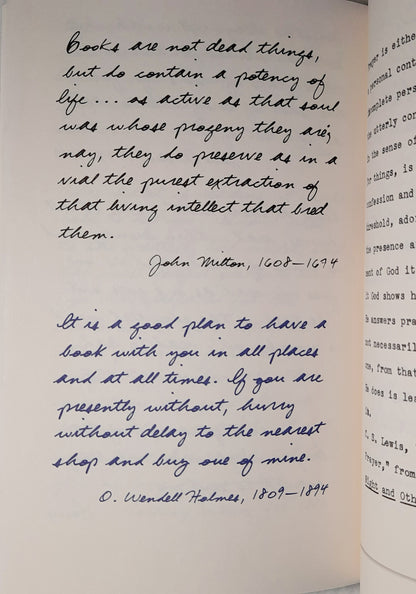 Books are not dead things,
but do contain a potency of
life ... as active as that soul
was whose progeny they are;
nay, they do preserve as in a
vial the purest extraction of
that living intellect that bred
them.
John Milton, 1608–1674
It is a good plan to have a
book with you in all places
and at all times. If you are
presently without, hurry
without delay to the nearest
shop and buy one of mine.
O. Wendell Holmes, 1809–1894
is eithe
personal cont
pers
utterly con
the sense of
things, is
and
ado
the presence a
of God it
God shows h
answers pra
necessaril
from that
does is les
S. Lewis,
from
and Oth